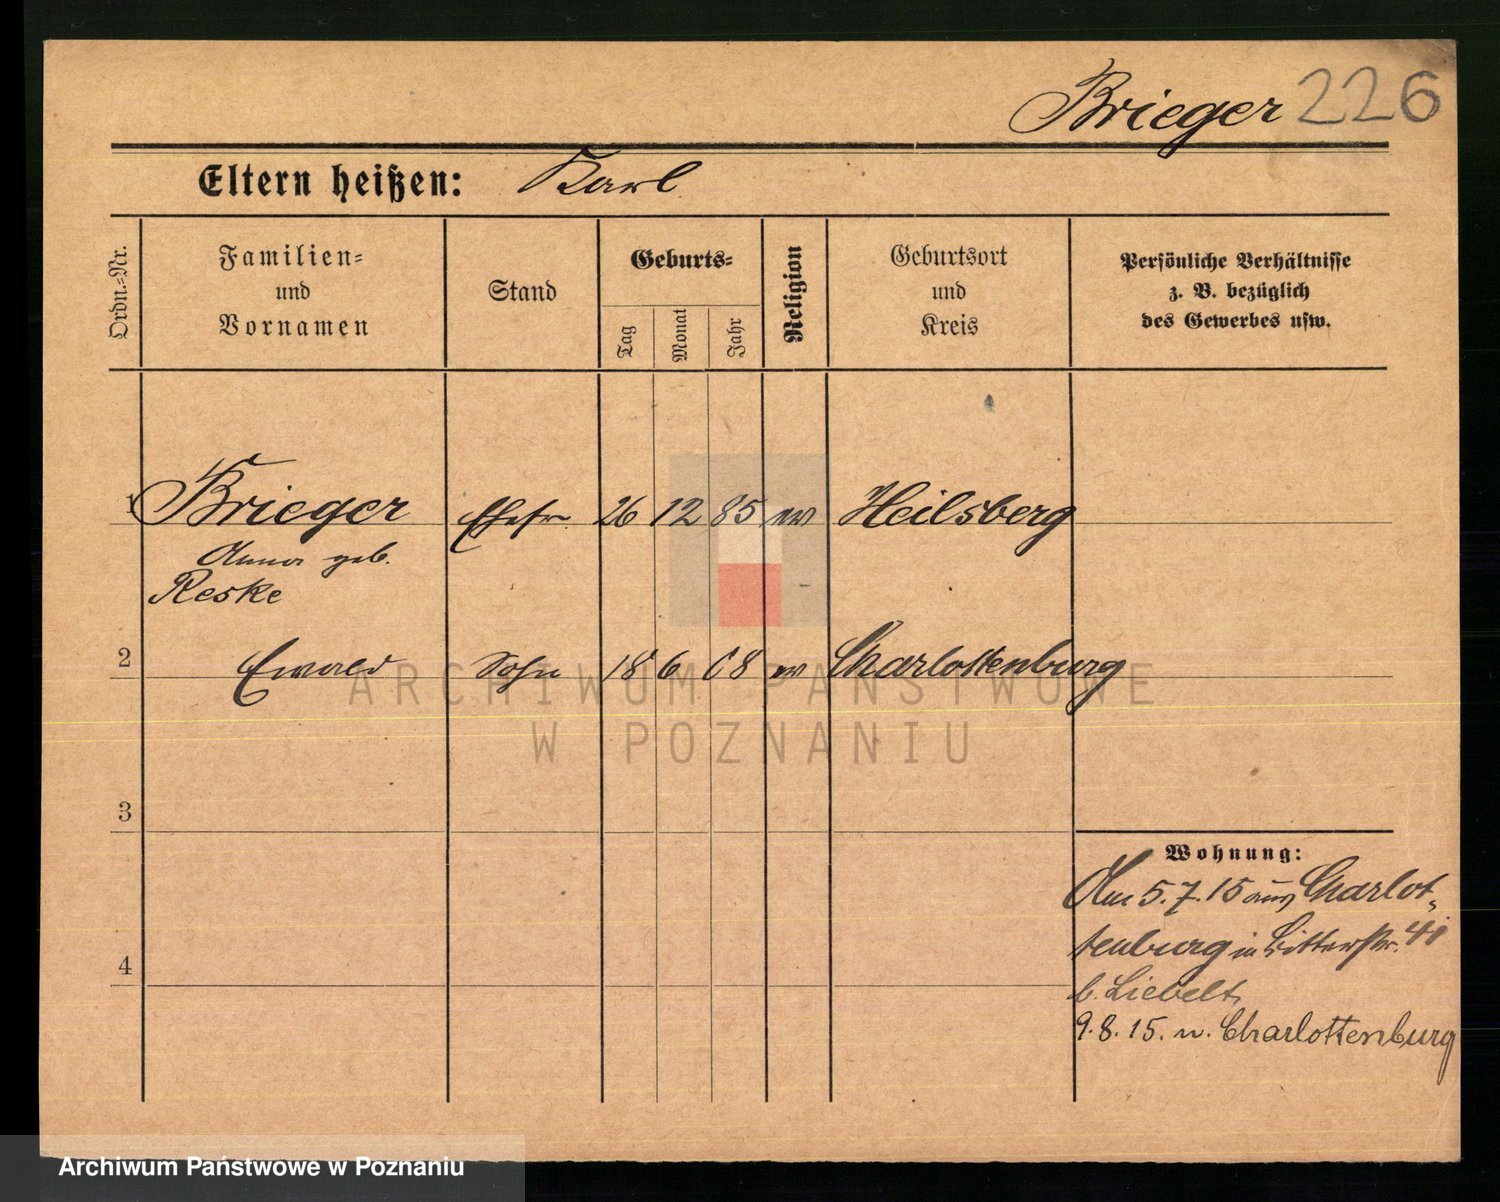 Brieger 226
Eltern heißen: Karl
Ordn.=Nr.
Familien=
und
Vornamen
Stand
Geburts=
Tag
Monat
Jahr
Religion
Geburtsort
und
Kreis
Persönliche Verhältnisse
z. B. bezüglich
des Gewerbes usw.
1 Brieger Ehefr. 26 12 85 ev Heilsberg
Anna geb.
Reske
2 Ewald Sohn 18 6 08 ev Charlottenburg
ARCHIWUM PAŃSTWOWE
W POZNANIU
3
4
Wohnung:
Am 5.7.15 aus Charlot-
tenburg in Ritterstr. 41
b. Liebelt
9.8.15. n. Charlottenburg
Archiwum Państwowe w Poznaniu